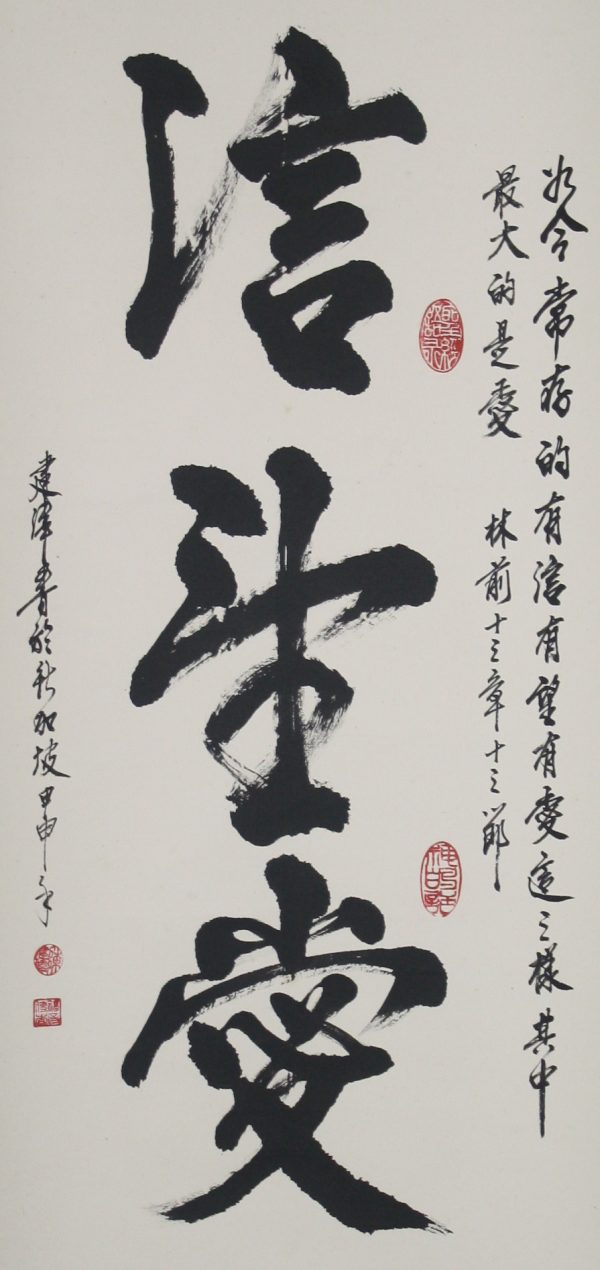 如今常存的有信有望有愛這三樣其中
最大的是愛 林前十三章十三節
信望愛
建津書於新加坡甲申年